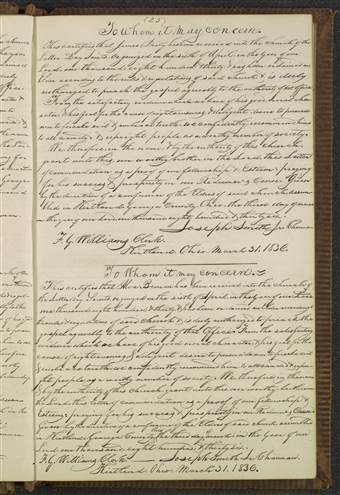 (25)
To Whom it May Concern.
This certifies that James
Latter Day Saints, organized on the sixth of April in the Year of our
Lord, one thousand, eight hundred & thirty, & has been ordained an
Elder according to the rules & regulations of said church & is duly
authorized to preach the gospel agreeably to the authority of that office
From the satisfactory evidence which we have of his good moral char-
acter, & his zeal for the cause of righteousness, & diligent desire to persuade
men to forsake evil & embrace truth, we confidently recommend him
to all candid & upright people as a worthy member of society.
We therefore, in the name, & by the authority of this church
grant unto this, our worthy brother in the Lord, this letter
of commendation as a proof of our fellowship & Esteem: praying
for his success & prosperity in our Redeemer's Cause. Given
by the direction of a conference of the Elders of said church assem-
bled in Kirtland, Geauga County, Ohio, the third day of March
in the year of our Lord, one thousand eight hundred & thirty six.
Joseph Smith Jr. Chairman
F. G. Williams Clerk.
Kirtland, Ohio. March 31. 1836.
To Whom it may concern.
This certifies that has been received into the church of
the Latter Day Saints, organized on the sixth of April, in the Year of our Lord
one thousand eight hundred & thirty, & has been ordained
rules & regulations of said church, & is duly authorized to preach the
gospel agreeably to the authority of that Office. From the satisfactory
evidence which we have of his good moral character, & his zeal for the
cause of righteousness, & diligent desire to persuade men to forsake evil
& embrace truth, we confidently recommend him to all candid & upri-
ght people as a worthy member of society. We therefore, in the name
& by the authority of this church, grant unto this our worthy brother in
the Lord, this letter of commendation as a proof of our fellowship &
Esteem: praying for his success & prosperity in our Redeemer's Cause.
Given by the direction of a conference of the Elders of said church assembled
in Kirtland, Geauga County, Ohio, the third day of March in the year of our
Lord, one thousand, eight hundred & thirty six.
F. G. Williams Clerk. Joseph Smith Jr. Chairman.
Kirtland, Ohio. March 31. 1836.